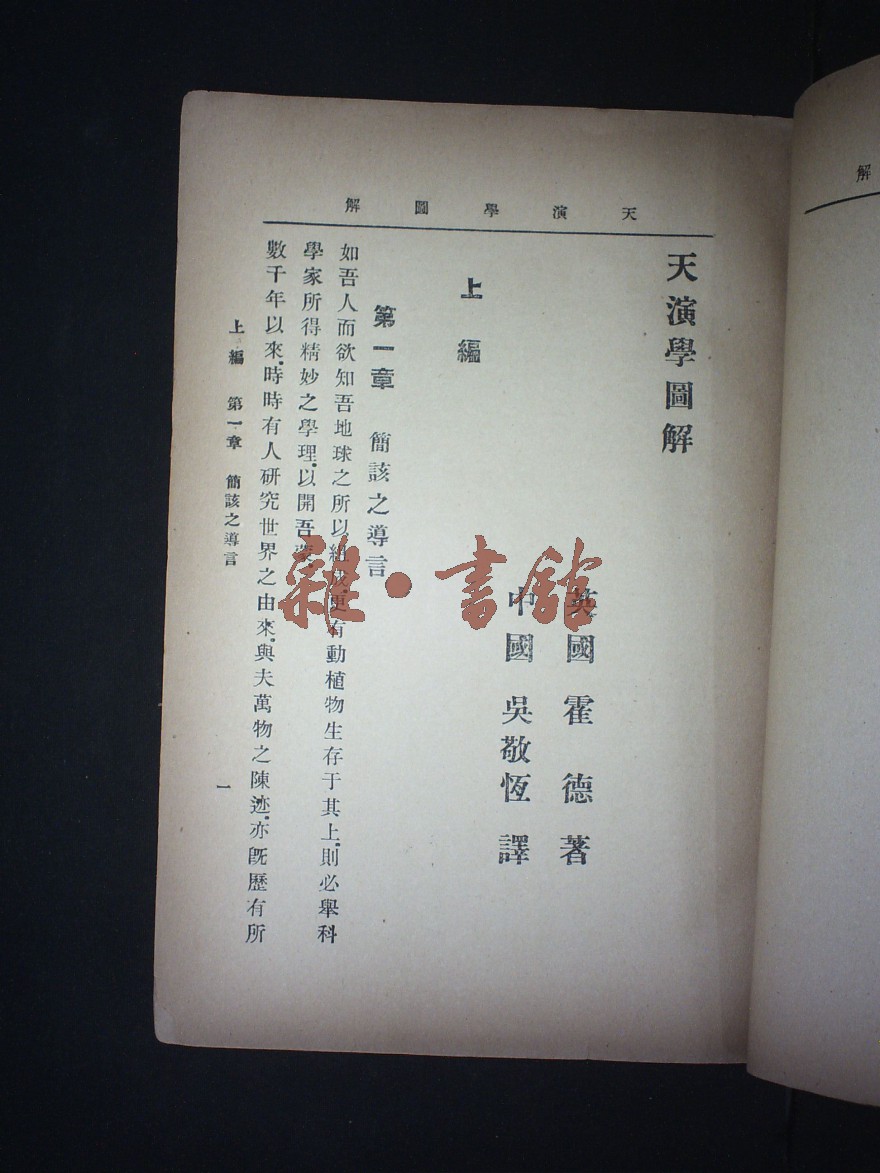 天演學圖解
天演學圖解
英國 霍德 著
中國 吳敬恆 譯
上編
第一章 簡該之導言
如吾人而欲知吾地球之所以組成.更有動植物生存于其上.則必舉科
學家所得精妙之學理.以開吾
數千年以來.時時有人研究世界之由來.與夫萬物之陳迹.亦旣歷有所
上編 第一章 簡該之導言
一
解
雜·書館